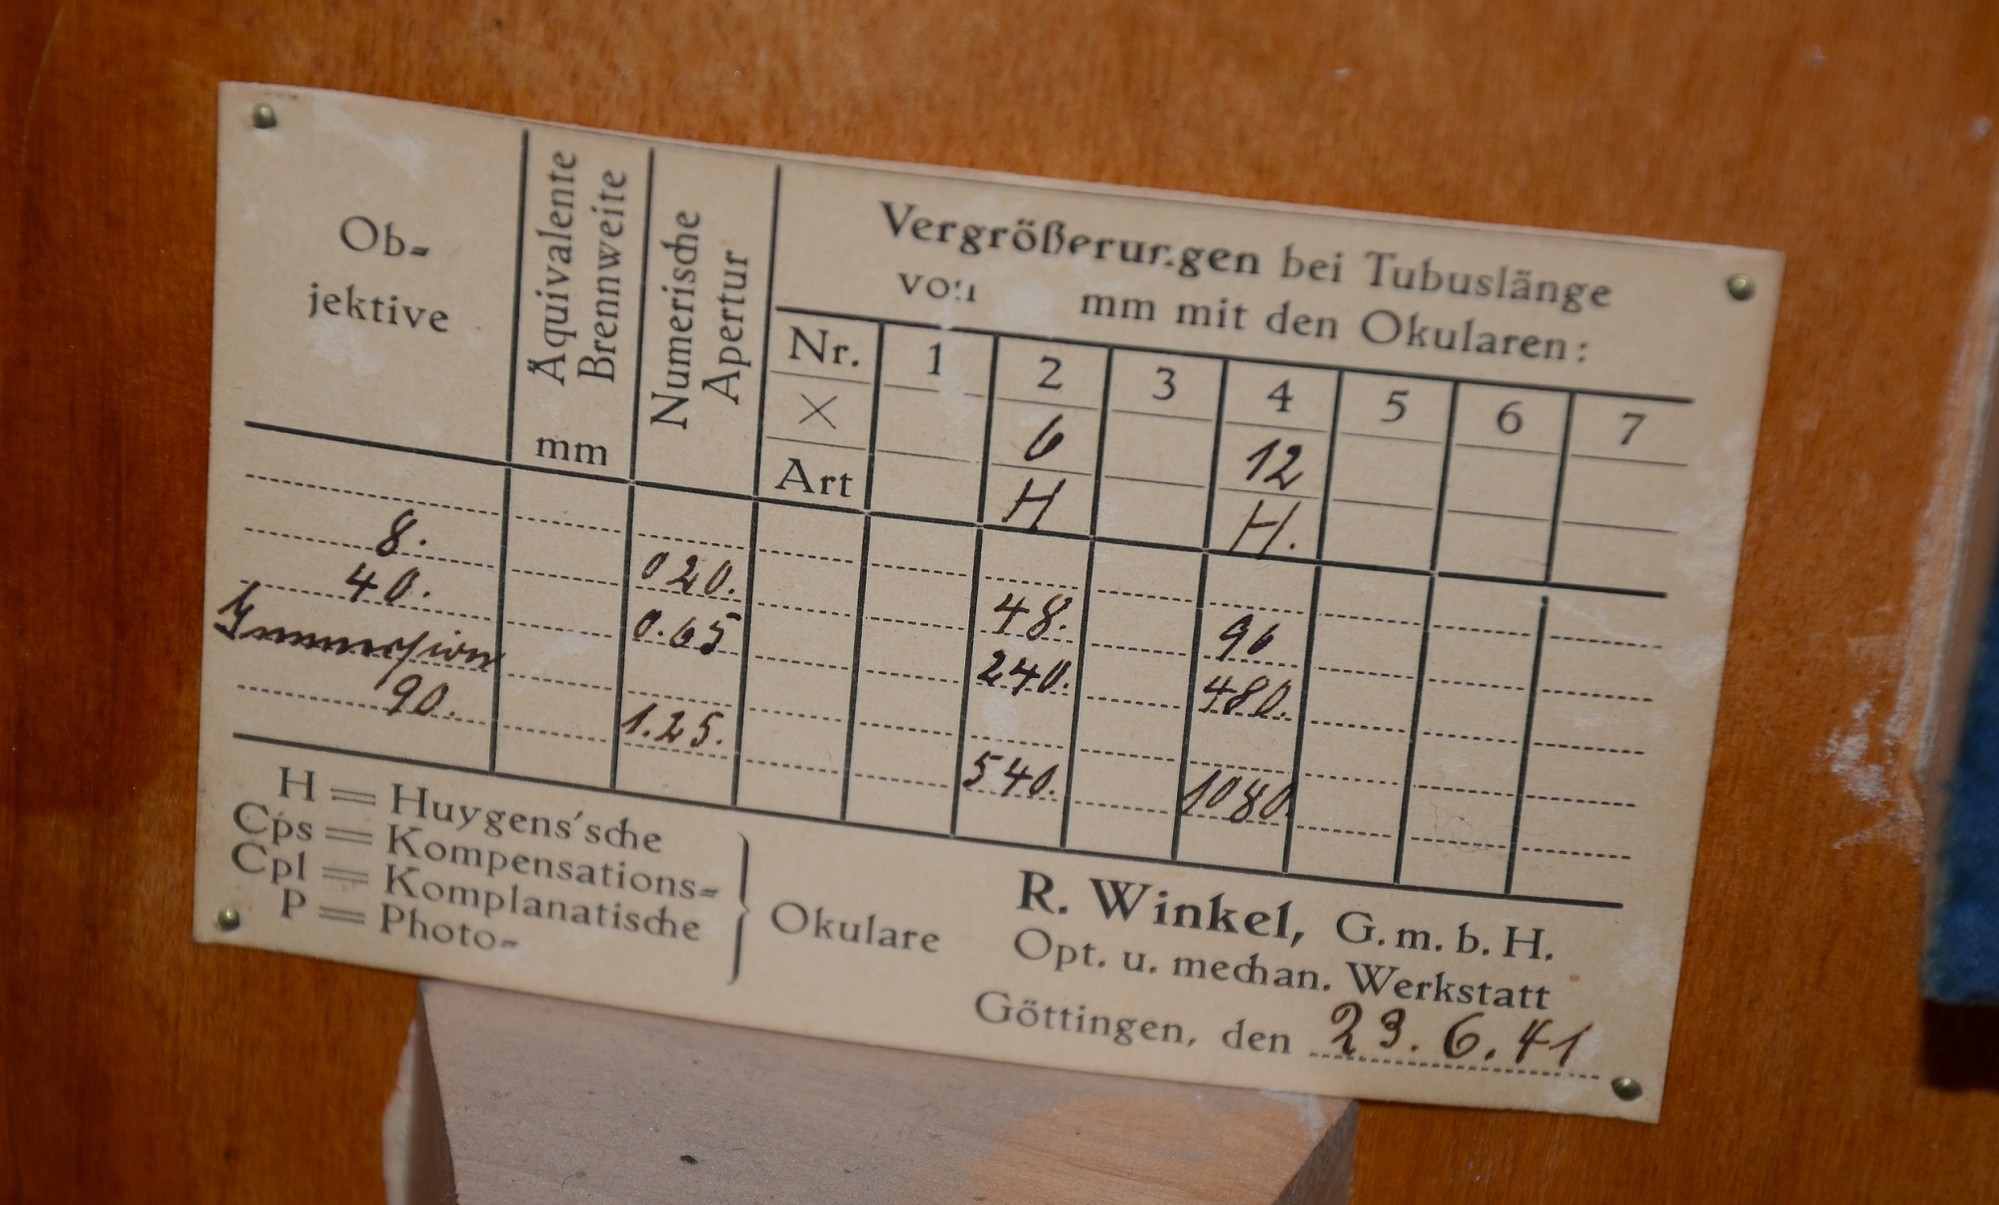 Ob=
jektive
Äquivalente
Brennweite
mm
Numerische
Apertur
Vergrößerungen bei Tubuslänge
von mm mit den Okularen:
Nr. 1 2 3 4 5 6 7
× 6 12
Art H H.
8. 020. 48. 96
40. 0.65 240. 480.
Immersion
90. 1.25. 540. 1080.
H = Huygens'sche
Cps = Kompensations=
Cpl = Komplanatische
P = Photo=
Okulare
R. Winkel, G.m.b.H.
Opt. u. mechan. Werkstatt
Göttingen, den 23.6.41